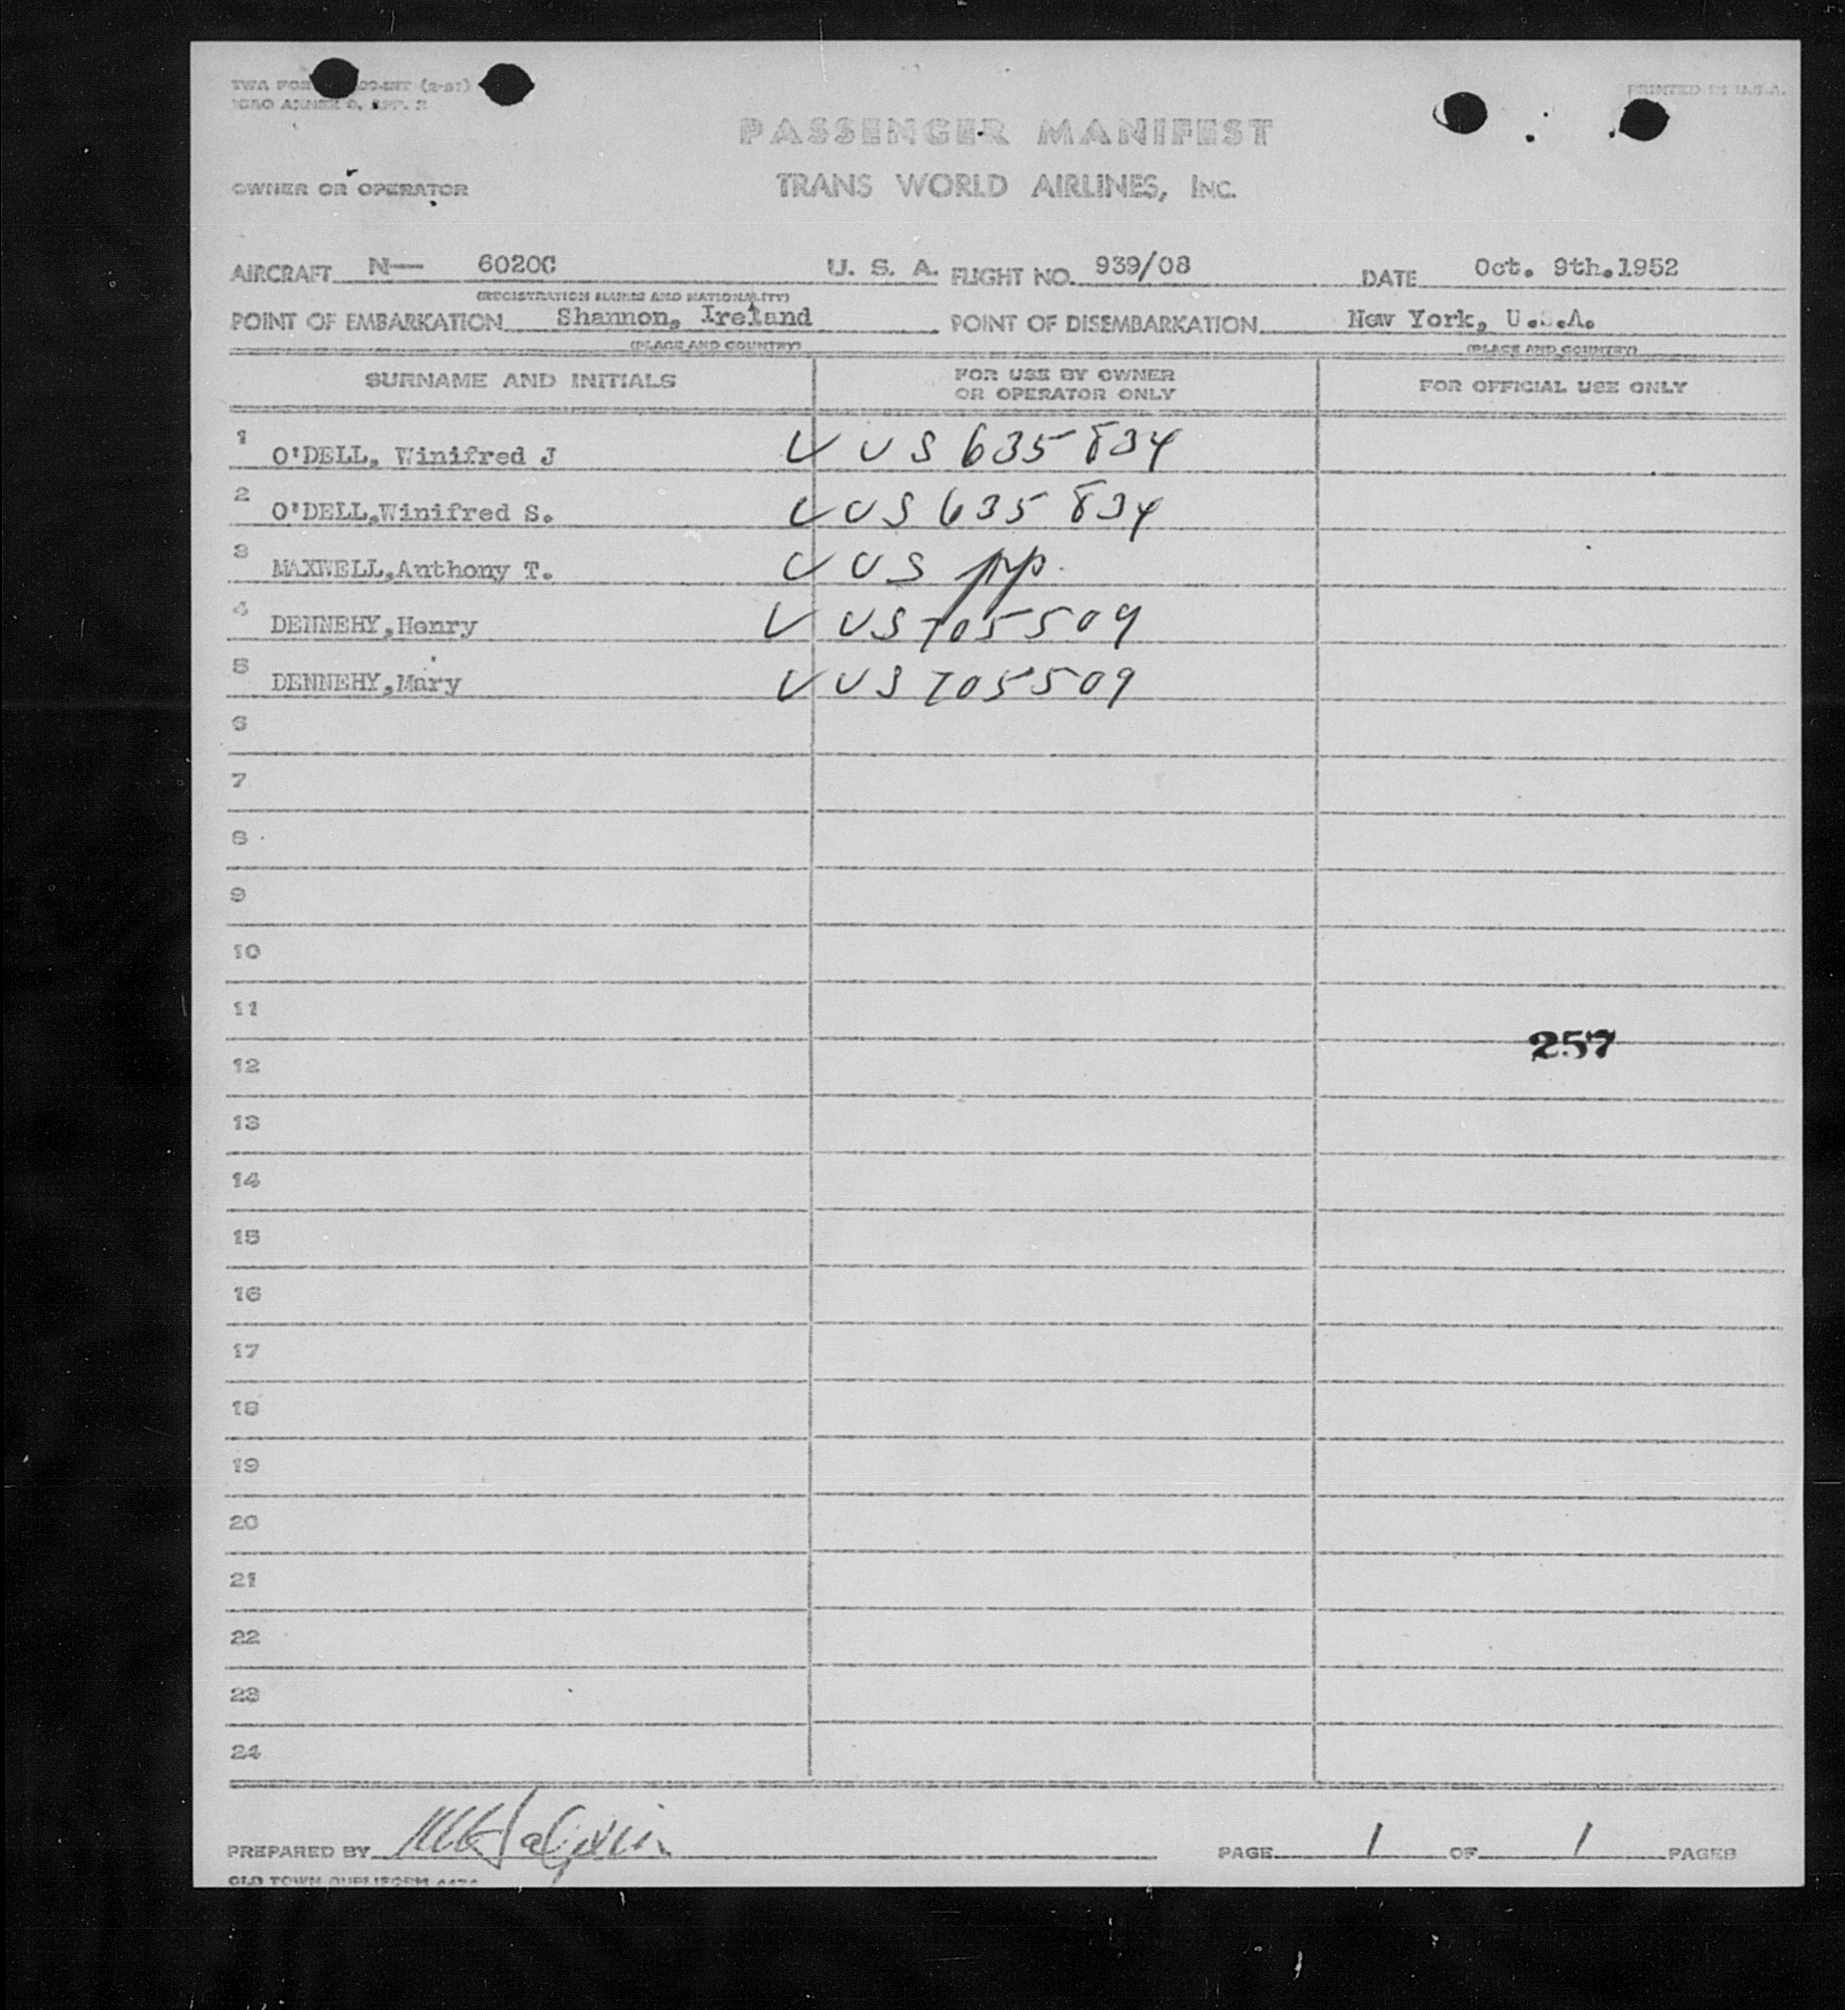 PRINTED IN U.S.A.
PASSENGER MANIFEST
OWNER OR OPERATOR TRANS WORLD AIRLINES, INC.
AIRCRAFT N— 6020C U. S. A. FLIGHT NO. 939/08 DATE Oct. 9th.1952
(REGISTRATION MARKS AND NATIONALITY)
POINT OF EMBARKATION Shannon, Ireland POINT OF DISEMBARKATION New York, U.S.A.
(PLACE AND COUNTRY) (PLACE AND COUNTRY)
SURNAME AND INITIALS FOR USE BY OWNER OR OPERATOR ONLY FOR OFFICIAL USE ONLY
1 O'DELL, Winifred J US 635834
2 O'DELL,Winifred S. US 635834
3 MAXWELL,Anthony T. US pp.
4 DENNEHY,Henry US 705509
5 DENNEHY,Mary US 705509
6
7
8
9
10
11
257
12
13
14
15
16
17
18
19
20
21
22
23
24
PREPARED BY PAGE 1 OF 1 PAGES